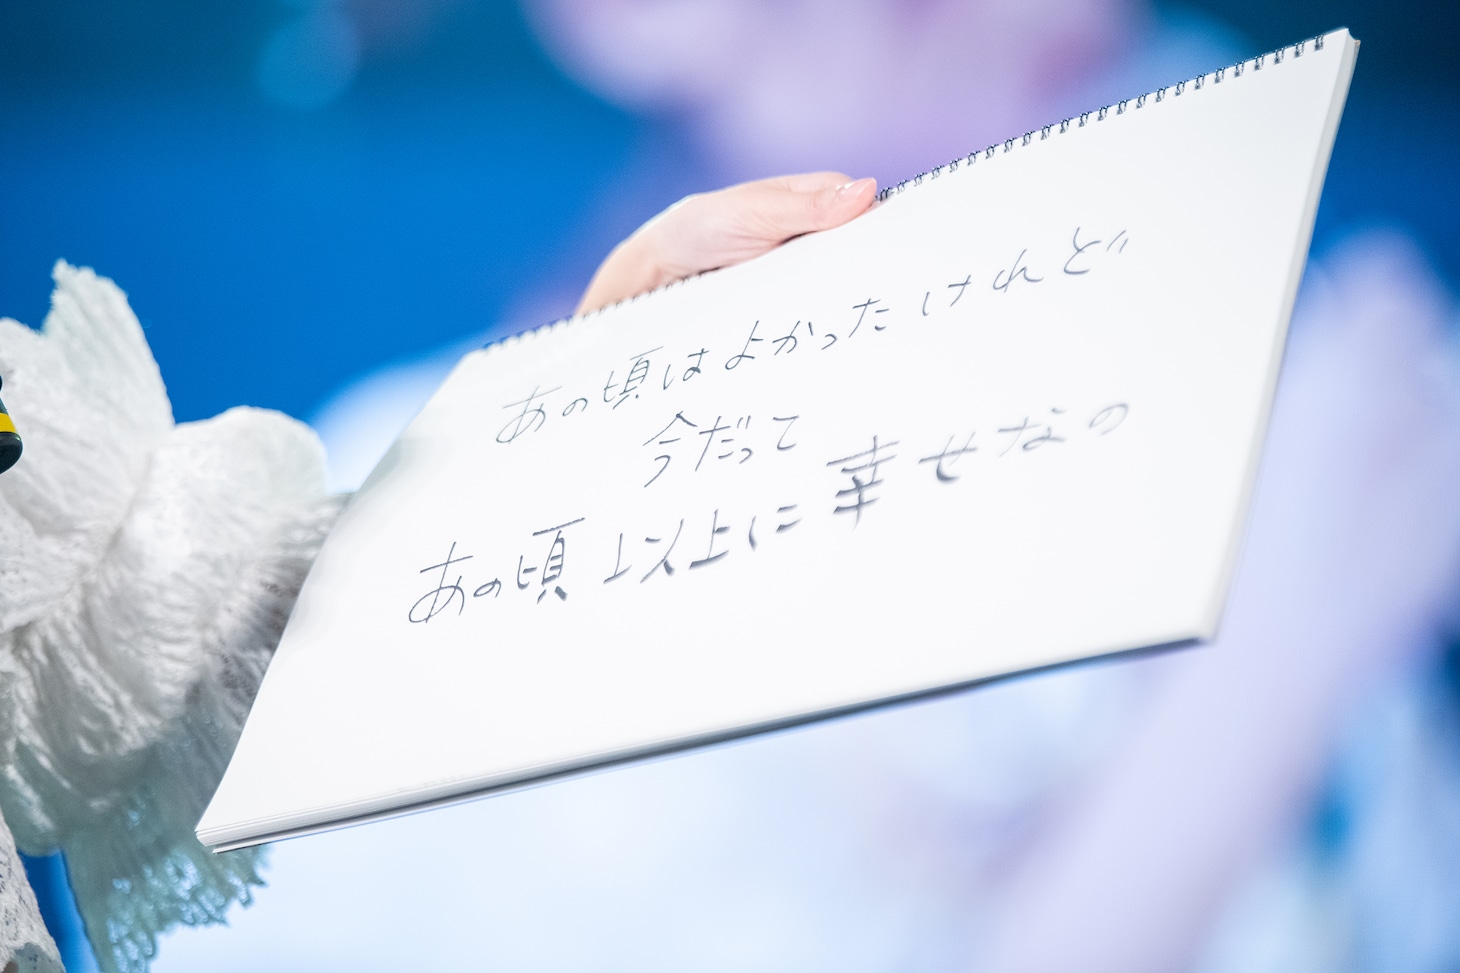 あの頃はよかったけれど
今だって
あの頃以上に幸せなの